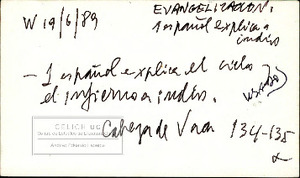 W 19/6/89
EVANGELIZACION.
1 español explica a
indios
- 1 español explica el cielo
el infierno a indios.
Cabeza de Vaca 134-135
CELICH UC